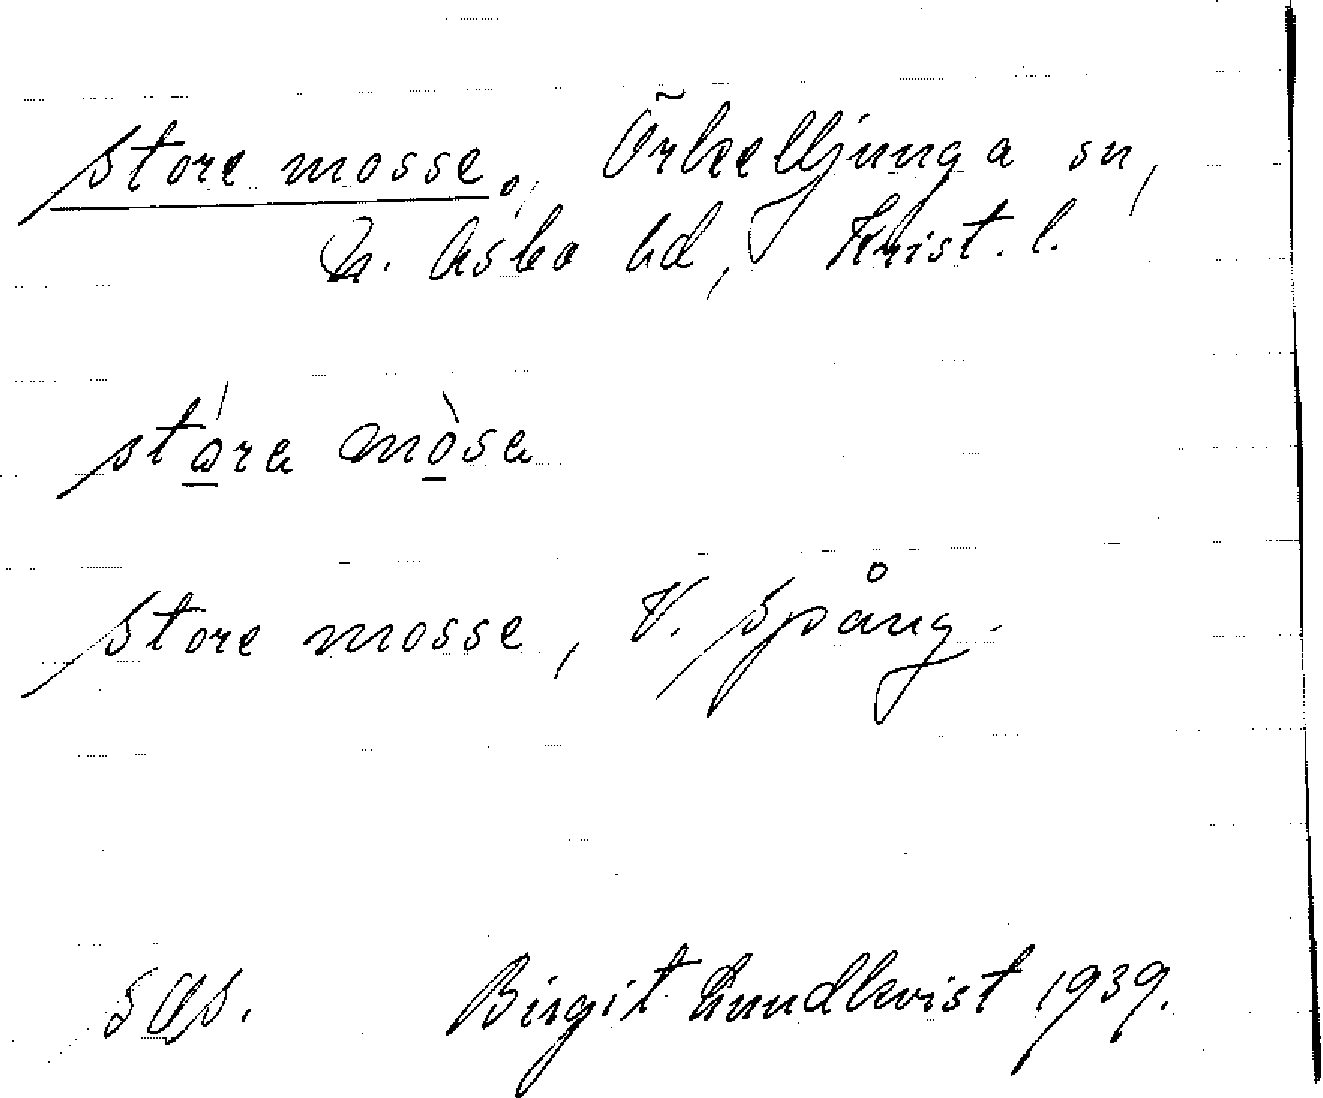 Store mosse. Örkelljunga sn,
N. Åsbo hd, Krist. l.
stóra mòsa
Store mosse, V. Spång.
SOS. Birgit Lundkvist 1939.